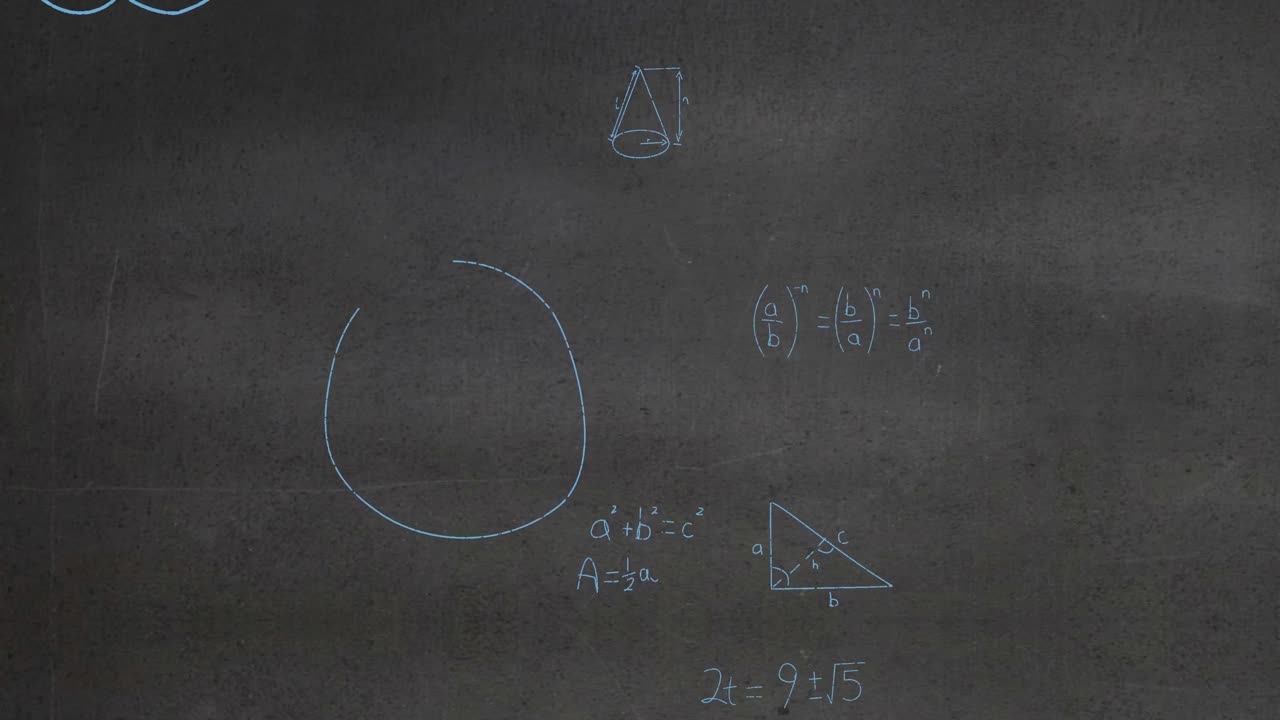 l h
r
(a/b)⁻ⁿ = (b/a)ⁿ = bⁿ/aⁿ
a² + b² = c²
A = ½a
a c
h
b
2t = 9 ± √5